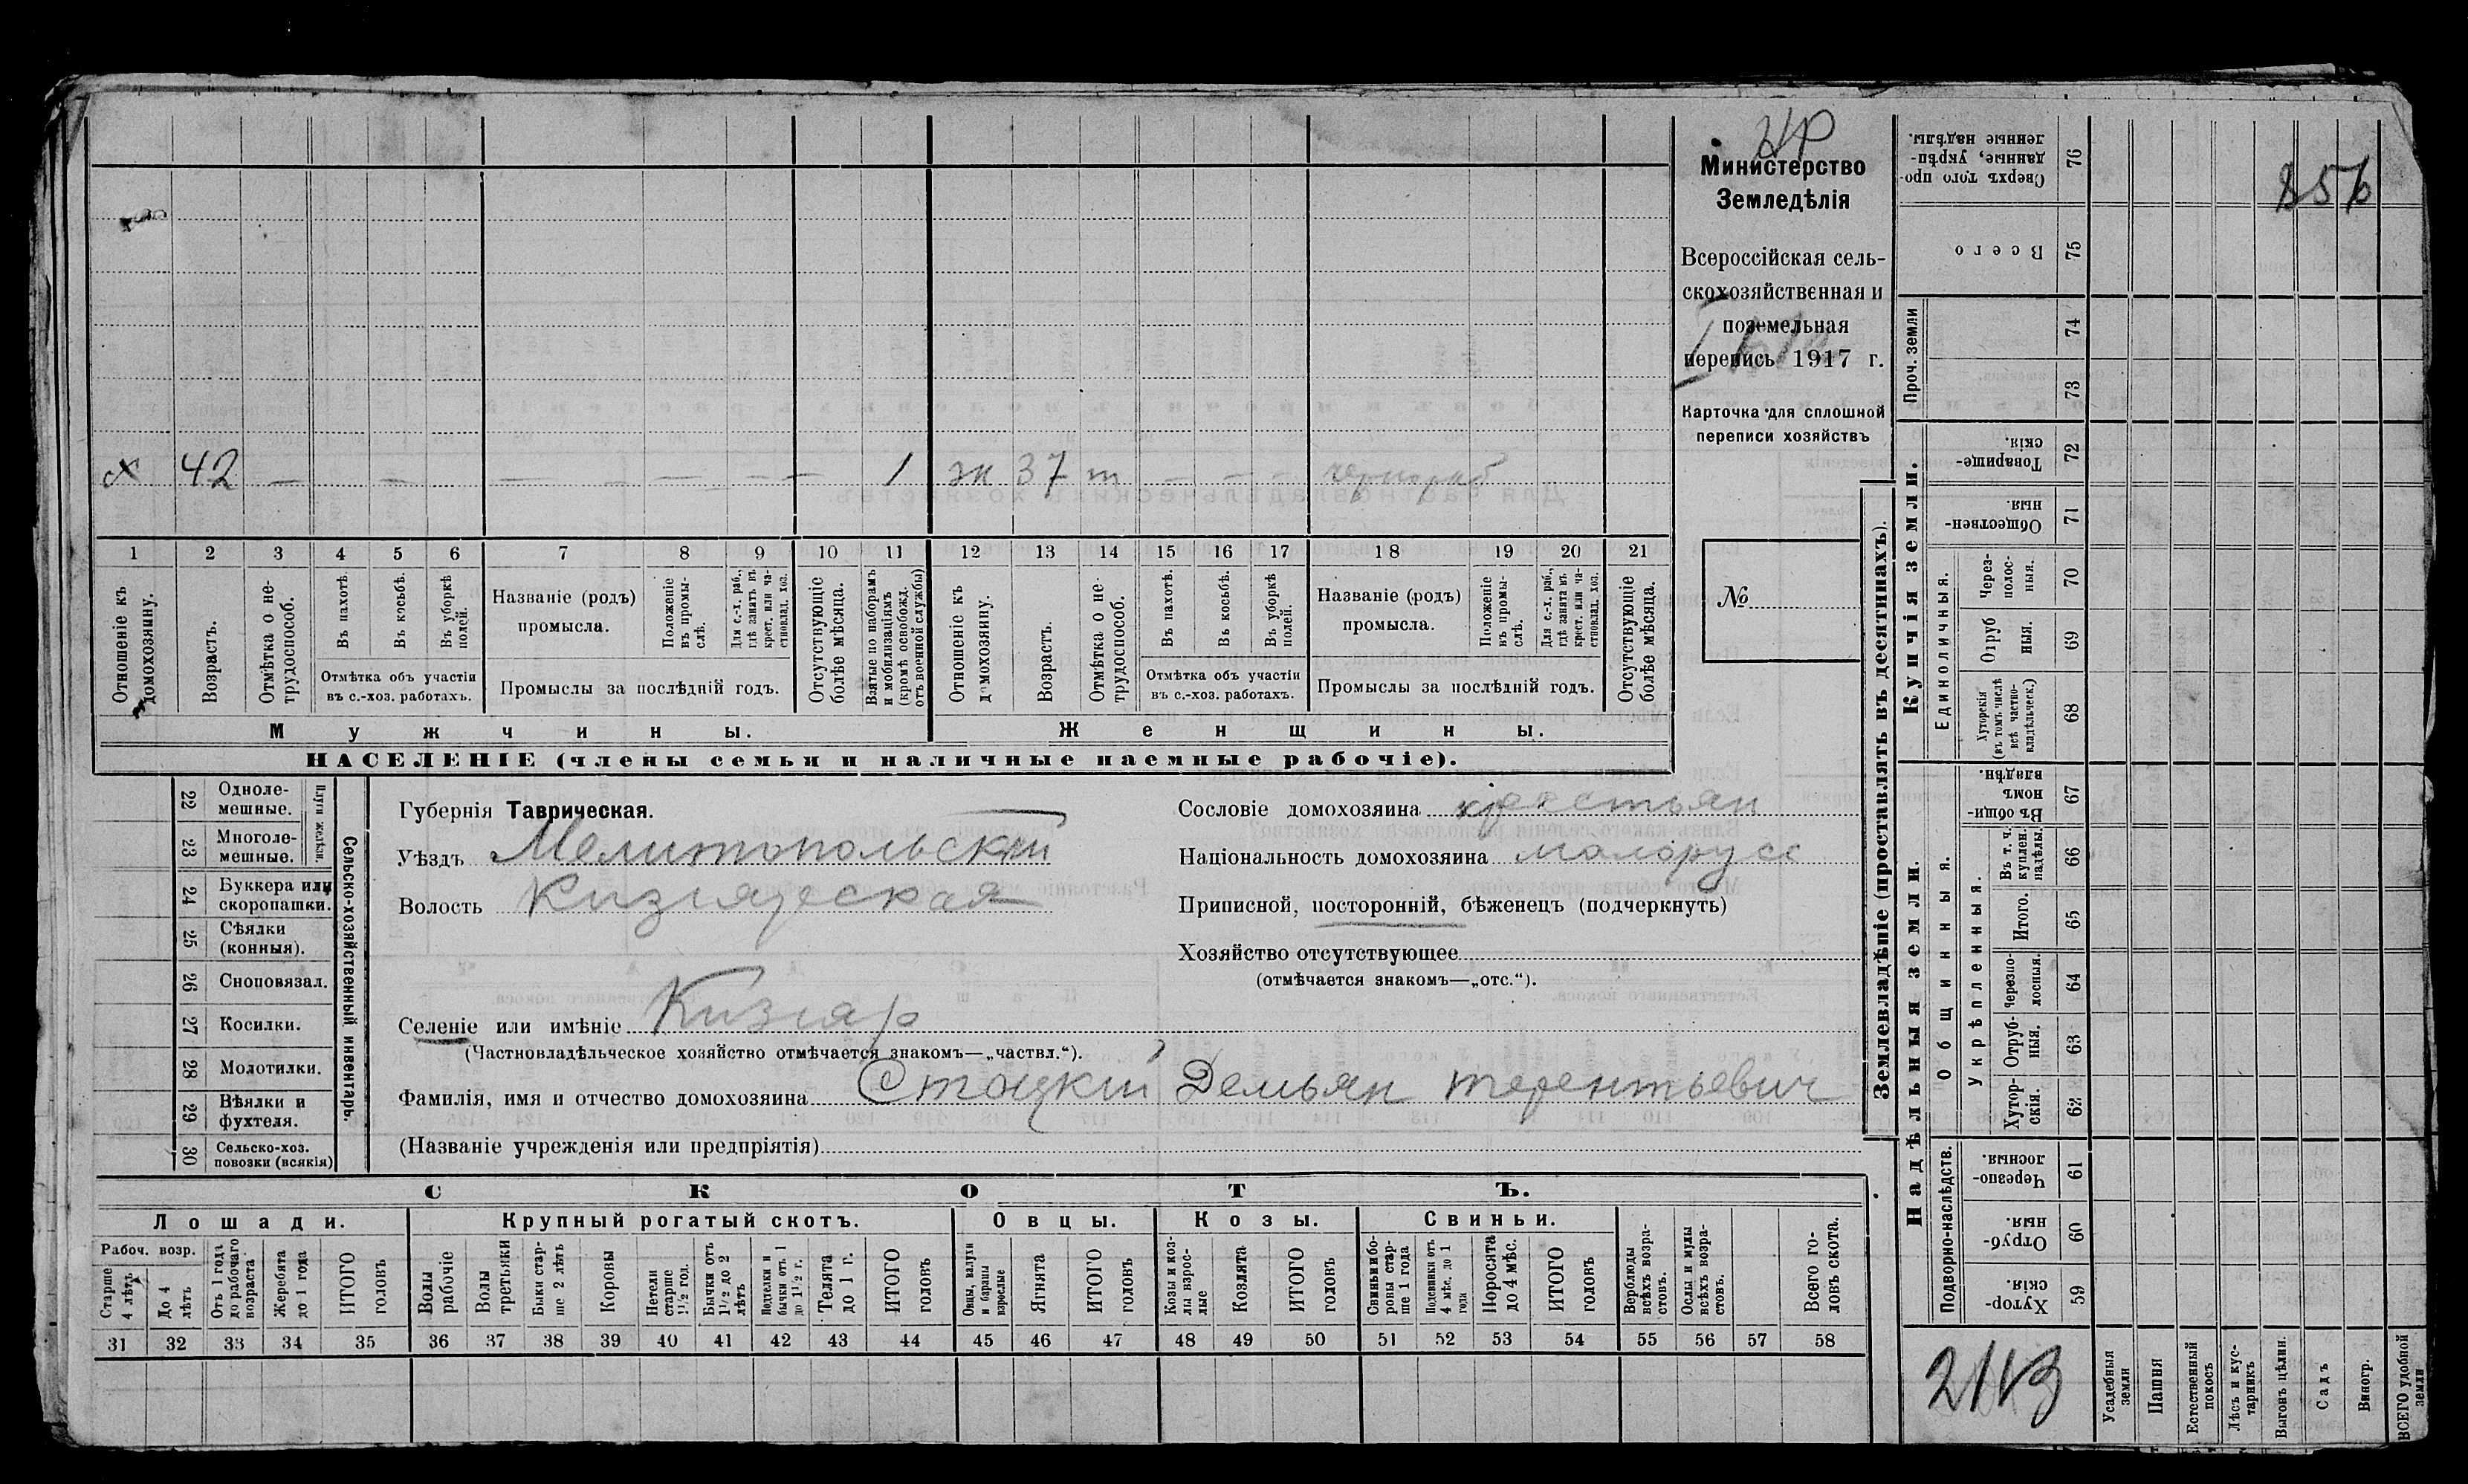 НР
Министерство
Земледѣлія
Всероссійская сель-
скохозяйственная и
поземельная
перепись 1917 г.
Карточка для сплошной
переписи хозяйствъ
№
856
х 42 — — — — — — — 1 ж 37 т — — — чернораб
1 2 3 4 5 6 7 8 9 10 11 12 13 14 15 16 17 18 19 20 21
Отношеніе къ домохозяину.
Возрастъ.
Отмѣтка о не-трудоспособ.
Въ пахотѣ.
Въ косьбѣ.
Въ уборкѣ полей.
Отмѣтка объ участіи
въ с.-хоз. работахъ.
Названіе (родъ)
промысла.
Положеніе въ промы-слѣ.
Для с.-х. раб., гдѣ занятъ въ крест. или ча-стновлад. хоз.
Промыслы за послѣдній годъ.
Отсутствующіе болѣе мѣсяца.
Взятые по наборамъ и мобилизаціямъ (кромѣ освобожд. отъ военной службы)
Отношеніе къ домохозяину.
Возрастъ.
Отмѣтка о не-трудоспособ.
Въ пахотѣ.
Въ косьбѣ.
Въ уборкѣ полей.
Отмѣтка объ участіи
въ с.-хоз. работахъ.
Названіе (родъ)
промысла.
Положеніе въ промы-слѣ.
Для с.-х. раб., гдѣ занята въ крест. или ча-стновлад. хоз.
Промыслы за послѣдній годъ.
Отсутствующіе болѣе мѣсяца.
Мужчины.
Женщины.
НАСЕЛЕНІЕ (члены семьи и наличные наемные рабочіе).
Сельско-хозяйственный инвентарь.
Плуги желѣзн.
22 Одноле-мешные.
23 Многоле-мешные.
24 Буккера или скоропашки.
25 Сѣялки (конныя).
26 Сноповязал.
27 Косилки.
28 Молотилки.
29 Вѣялки и фухтеля.
30 Сельско-хоз. повозки (всякія)
Губернія Таврическая.
Уѣздъ Мелитопольский
Волость Кизиярская
Селеніе или имѣніе Кизияр
(Частновладѣльческое хозяйство отмѣчается знакомъ—„частвл.“).
Фамилія, имя и отчество домохозяина Стоцкий Демьян Терентьевич
(Названіе учрежденія или предпріятія)
Сословіе домохозяина крестьян
Національность домохозяина малорусс
Приписной, посторонній, бѣженецъ (подчеркнуть)
Хозяйство отсутствующее
(отмѣчается знакомъ—„отс.“).
СКОТЪ.
Лошади.
Крупный рогатый скотъ.
Овцы.
Козы.
Свиньи.
Рабоч. возр.
Старше 4 лѣтъ
До 4 лѣтъ
Отъ 1 года до рабочаго возраста
Жеребята до 1 года
ИТОГО головъ
Волы рабочіе
Волы третьяки
Быки стар-ше 2 лѣтъ
Коровы
Нетели старше 1½ год.
Бычки отъ 1½ до 2 лѣтъ
Подтелки и бычки отъ 1 до 1½ г.
Телята до 1 г.
ИТОГО головъ
Овцы, валухи и бараны взрослые
Ягнята
ИТОГО головъ
Козы и коз-лы взрос-лые
Козлята
ИТОГО головъ
Свиньи и бо-ровы стар-ше 1 года
Подсвинки отъ 4 мѣс. до 1 года
Поросята до 4 мѣс.
ИТОГО головъ
Верблюды всѣхъ возра-стовъ.
Ослы и мулы всѣхъ возра-стовъ.
Всего го-ловъ скота.
31 32 33 34 35 36 37 38 39 40 41 42 43 44 45 46 47 48 49 50 51 52 53 54 55 56 57 58
Землевладѣніе (проставлять въ десятинахъ).
Сверхъ того про-данные, укрѣп-ленные надѣлы. 76
Всего 75
Проч. земли
74
73
Купчія земли.
Товарище-скія. 72
Обществен-ныя. 71
Единоличныя.
Через-полос-ныя. 70
Отруб ныя. 69
Хуторскія (въ томъ числѣ всѣ частно-владѣльческ.) 68
Надѣльныя земли.
Общинныя.
Въ общин номъ владѣн. 67
Укрѣпленныя.
Въ т. ч. куплен. надѣлы. 66
Итого. 65
Черезпо-лосныя. 64
Отруб-ныя. 63
Хутор-скія. 62
Подворно-наслѣдств.
Черезпо-лосныя. 61
Отруб-ныя. 60
Хутор-скія. 59
Усадебныя земли
Пашня
Естественный покосъ
Лѣсъ и кус-тарникъ
Выгонъ цѣлин.
Садъ
Виногр.
ВСЕГО удобной земли